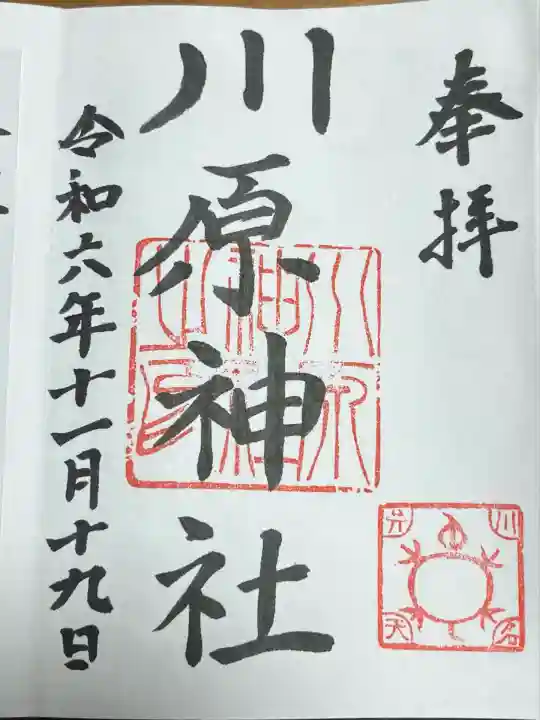 奉拝
川名
弁天
川原神社
川原神社之印
令和六年十一月十九日